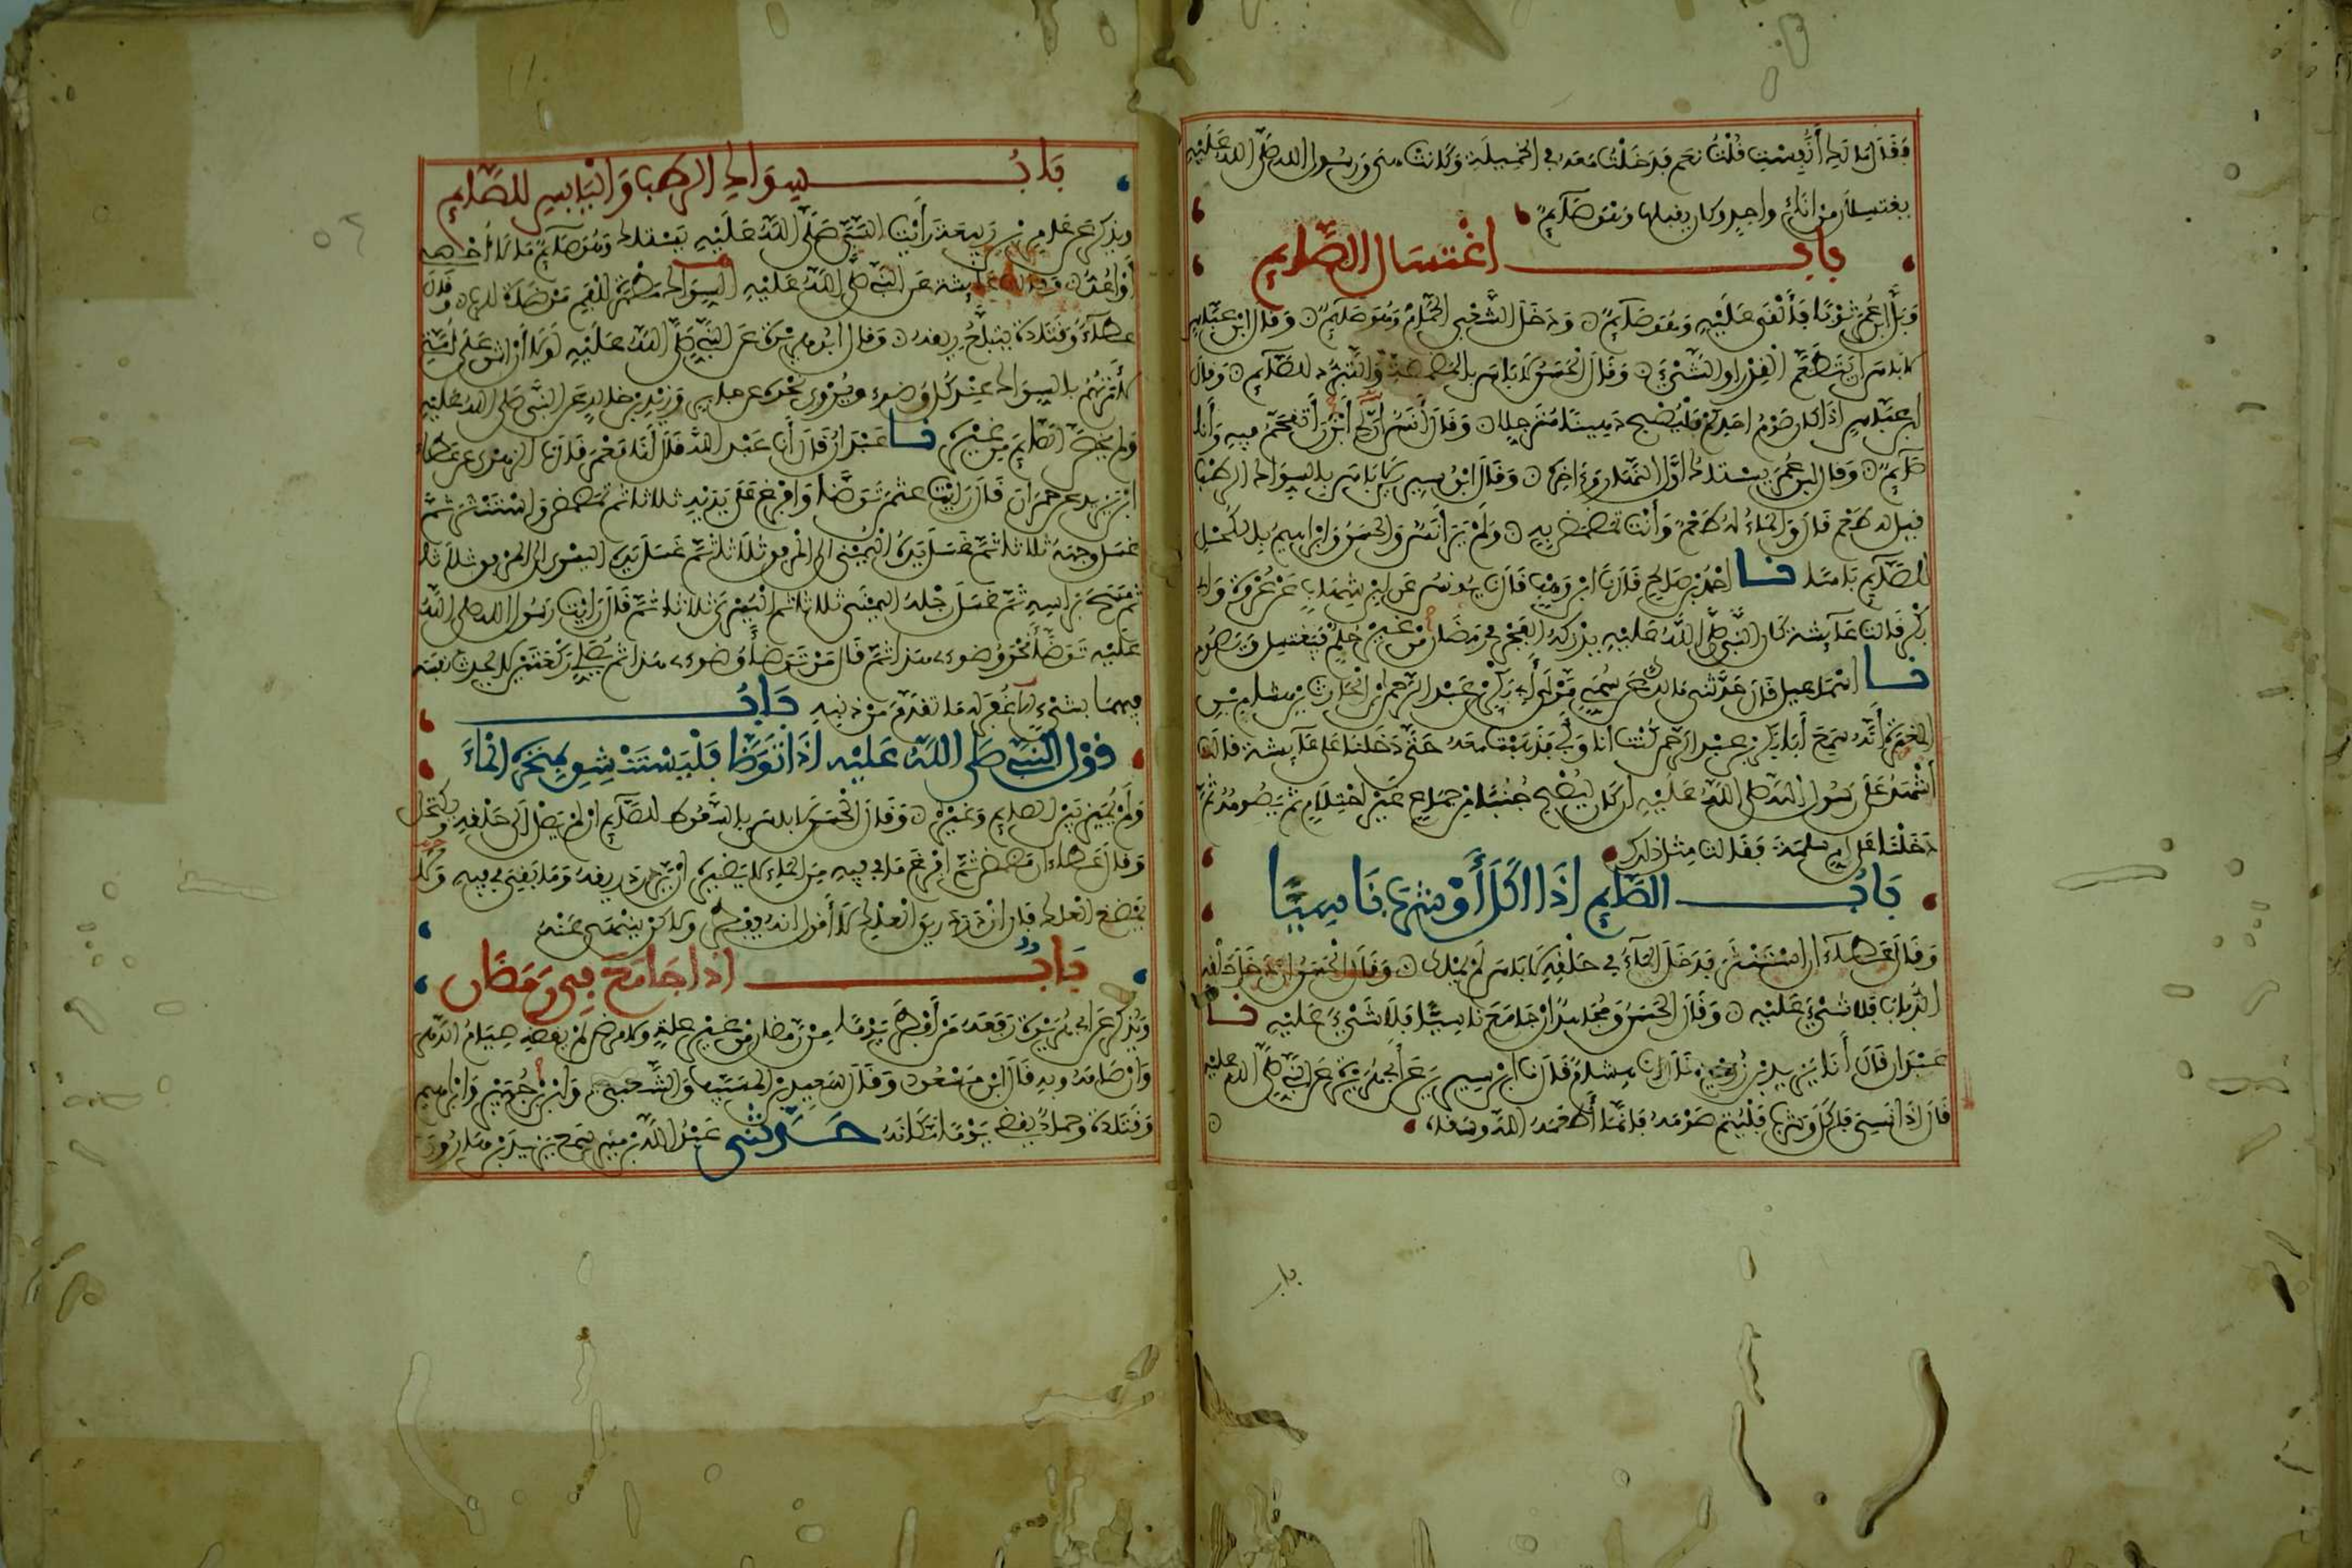 فقال ما لك أنفست قلت نعم فدخلت معه في الخميلة وكانت هي ورسول الله صلى الله عليه
يغتسلان من إناء واحد وكان يقبلها وهو صائم
باب اغتسال الصائم
وبل ابن عمر ثوبا فألقي عليه وهو صائم ودخل الشعبي الحمام وهو صائم وقال ابن عباس
لا بأس أن يتطعم القدر أو الشيء وقال الحسن لا بأس بالمضمضة والتبرد للصائم وقال
ابن عباس إذا كان صوم أحدكم فليصبح دهينا مترجلا وقال أنس إن لي أبزن أتقحم فيه وأنا
صائم وقال ابن عمر يستاك أول النهار وءاخره وقال ابن سيرين لا بأس بالسواك الرطب
قيل له طعم قال والماء له طعم وأنت تمضمض به ولم ير أنس والحسن وإبراهيم بالكحل
للصائم بأسا نا أحمد بن صالح قال نا ابن وهب قال نا يونس عن ابن شهاب عن عروة وأبي
بكر قالت عائشة كان النبي صلى الله عليه يدركه الفجر في رمضان من غير حلم فيغتسل ويصوم
نا إسماعيل قال حدثني مالك عن سمي مولى أبي بكر بن عبد الرحمن بن الحارث بن هشام بن
المغيرة أنه سمع أبا بكر بن عبد الرحمن كنت أنا وأبي فذهبت معه حتى دخلنا على عائشة قالت
أشهد على رسول الله صلى الله عليه إن كان ليصبح جنبا من جماع غير احتلام ثم يصومه ثم
دخلنا على أم سلمة فقالت مثل ذلك
باب الصائم إذا أكل أو شرب ناسيا
وقال عطاء إن استنثر فدخل الماء في حلقه لا بأس لم يملك وقال الحسن إن دخل حلقه
الذباب فلا شيء عليه وقال الحسن ومجاهد إن جامع ناسيا فلا شيء عليه نا
عبدان قال أنا يزيد بن زريع قال نا هشام قال نا ابن سيرين عن أبي هريرة عن النبي صلى الله عليه
قال إذا نسي فأكل وشرب فليتم صومه فإنما أطعمه الله وسقاه
باب
باب سواك الرطب واليابس للصائم
ويذكر عن عامر بن ربيعة رأيت النبي صلى الله عليه يستاك وهو صائم ما لا أحصي
أو أعد وقالت عائشة عن النبي صلى الله عليه السواك مطهرة للفم مرضاة للرب وقال
عطاء وقتادة يبتلع ريقه وقال أبو هريرة عن النبي صلى الله عليه لولا أن أشق على أمتي
لأمرتهم بالسواك عند كل وضوء ويروى نحوه عن جابر وزيد بن خالد عن النبي صلى الله عليه
ولم يخص الصائم من غيره نا عبدان قال أنا عبد الله قال أنا معمر قال نا الزهري عن عطاء
ابن يزيد عن حمران قال رأيت عثمن توضأ وافرغ على يديه ثلاثا ثم تمضمض واستنثر ثم
غسل وجهه ثلاثا ثم غسل يده اليمنى إلى المرفق ثلاثا ثم غسل يده اليسرى إلى المرفق ثلاثا
ثم مسح برأسه ثم غسل رجله اليمنى ثلاثا ثم اليسرى ثلاثا ثم قال رأيت رسول الله صلى الله
عليه توضأ نحو وضوءي هذا ثم قال من توضأ وضوءي هذا ثم يصلي ركعتين لا يحدث نفسه
فيهما بشيء غفر له ما تقدم من ذنبه باب
قول النبي صلى الله عليه إذا توضأ فليستنشق بمنخره الماء
ولم يميز بين الصائم وغيره وقال الحسن لا بأس بالسعوط للصائم إن لم يصل إلى حلقه ويكتحل
وقال عطاء إن مضمض ثم افرغ ما في فيه من الماء لا يضيره إن يزدرد ريقه وما بقي في فيه ولا
يمضغ العلك فإن ازدرد ريق العلك لا أقول إنه يفطر ولاكن ينهى عنه
باب إذا جامع في رمضان
ويذكر عن أبي هريرة رفعه من أفطر يوما من رمضان من غير علة ولا مرض لم يقضه صيام الدهر
وإن صامه وبه قال ابن مسعود وقال سعيد بن المسيب والشعبي وابن جبير وإبراهيم
وقتادة وحماد يقضي يوما مكانه حدثني عبد الله بن منير سمع يزيد بن هارون